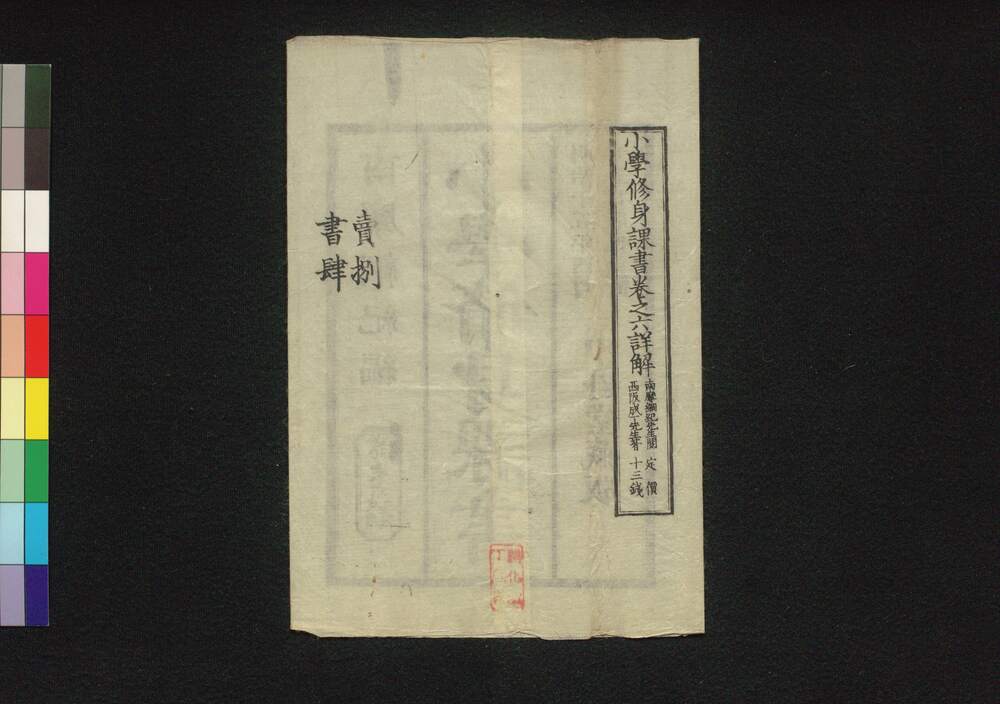 小學修身課書卷之六詳解
南摩綱紀先生閲
西阪成一先生著
定價
十三錢
賣捌
書肆